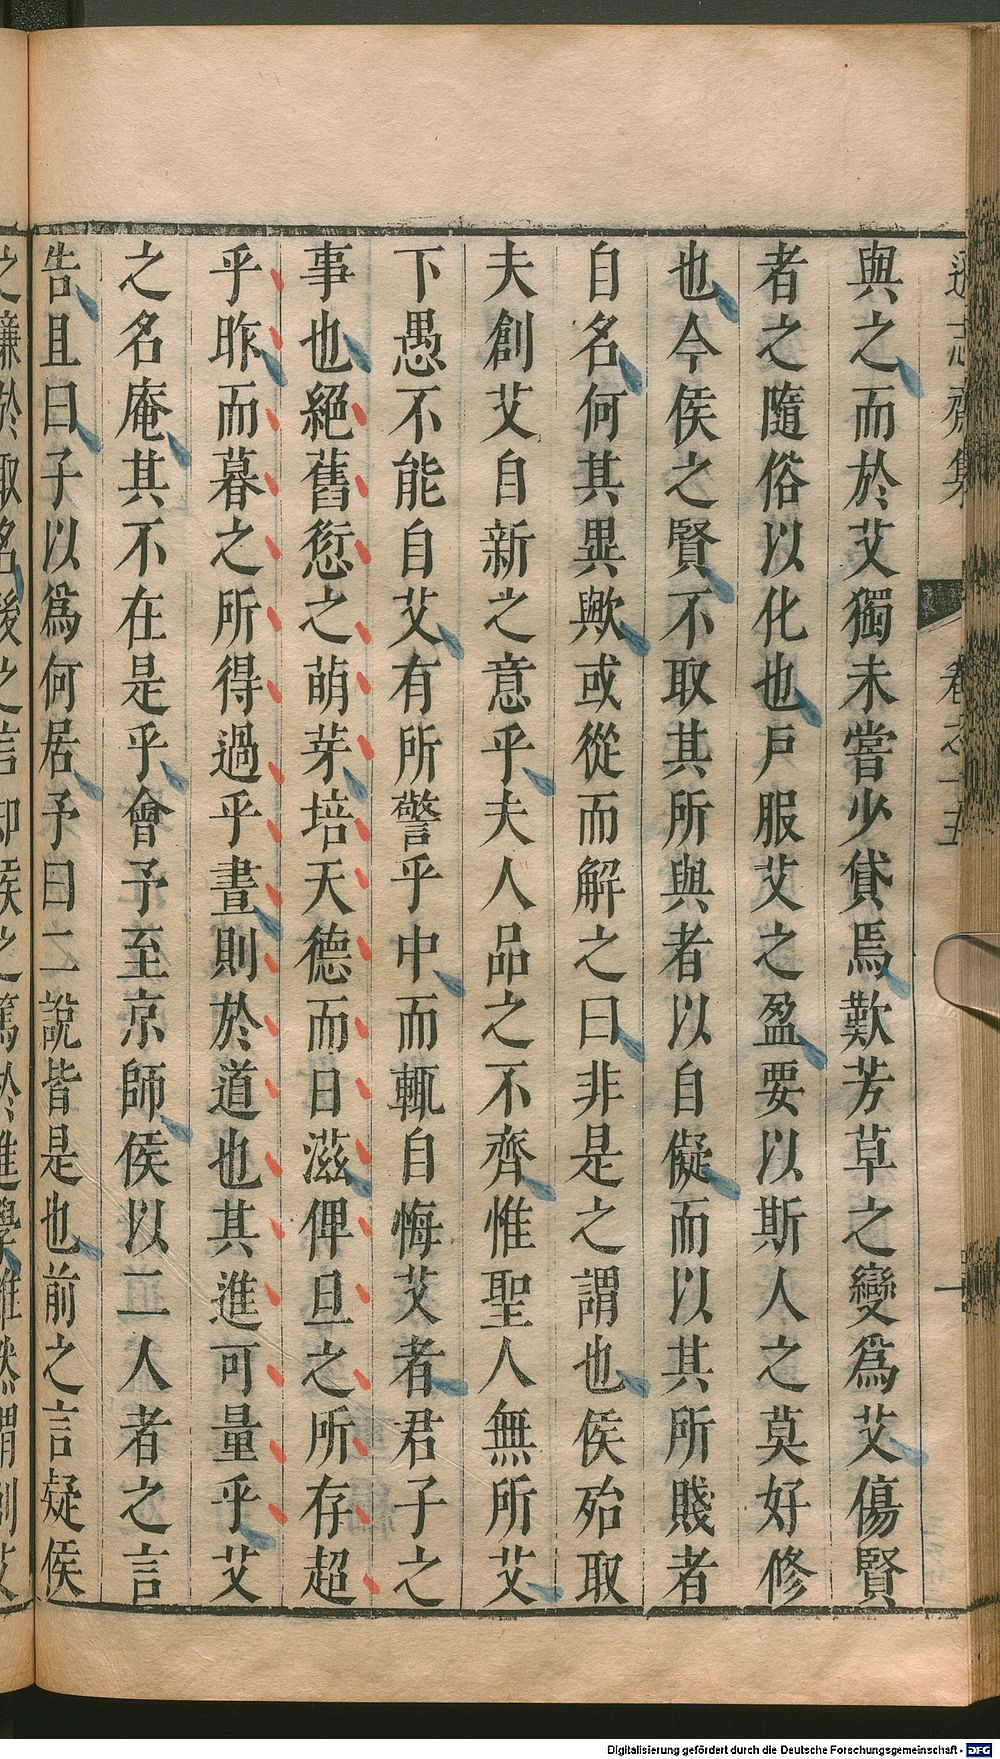 與之而於艾獨未嘗少貸焉歎芳草之變爲艾傷賢
者之隨俗以化也戶服艾之盈要以斯人之莫好修
也今侯之賢不取其所與者以自儗而以其所賤者
自名何其異歟或從而解之曰非是之謂也侯殆取
夫創艾自新之意乎夫人品之不齊惟聖人無所艾
下愚不能自艾有所警乎中而輒自悔艾者君子之
事也絕舊愆之萌芽培天德而日滋俾旦之所存超
乎昨而暮之所得過乎晝則於道也其進可量乎艾
之名庵其不在是乎會予至京師侯以二人者之言
告且曰子以爲何居予曰二說皆是也前之言疑侯
Digitalisierung gefördert durch die Deutsche Forschungsgemeinschaft - DFG